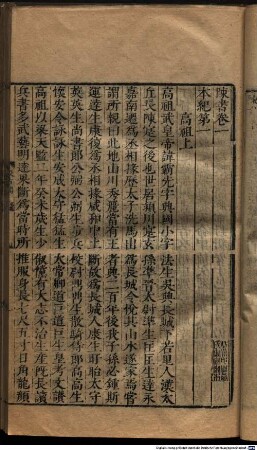 陳書卷一
本紀第一
高祖上
高祖武皇帝諱霸先字興國小字法生吳興長城下若里人漢太
丘長陳寔之後也世居潁川寔玄孫準晉太尉準生匡匡生達永
嘉南遷爲丞相掾歷太子洗馬出爲長城令悅其山水遂家焉嘗
謂所親曰此地山川秀麗當有王者興二百年後我子孫必鍾斯
運達生康復爲丞相掾咸和中土斷故爲長城人康生盱眙太守
英英生尚書郎公弼公弼生步兵校尉鼎鼎生散騎侍郎高高生
懷安令詠詠生安成太守猛猛生太常卿道巨道巨生皇考文讚
高祖以梁天監二年癸未歲生少俶儻有大志不治生產旣長讀
兵書多武藝明達果斷爲當時所推服身長七尺五寸日角龍顏